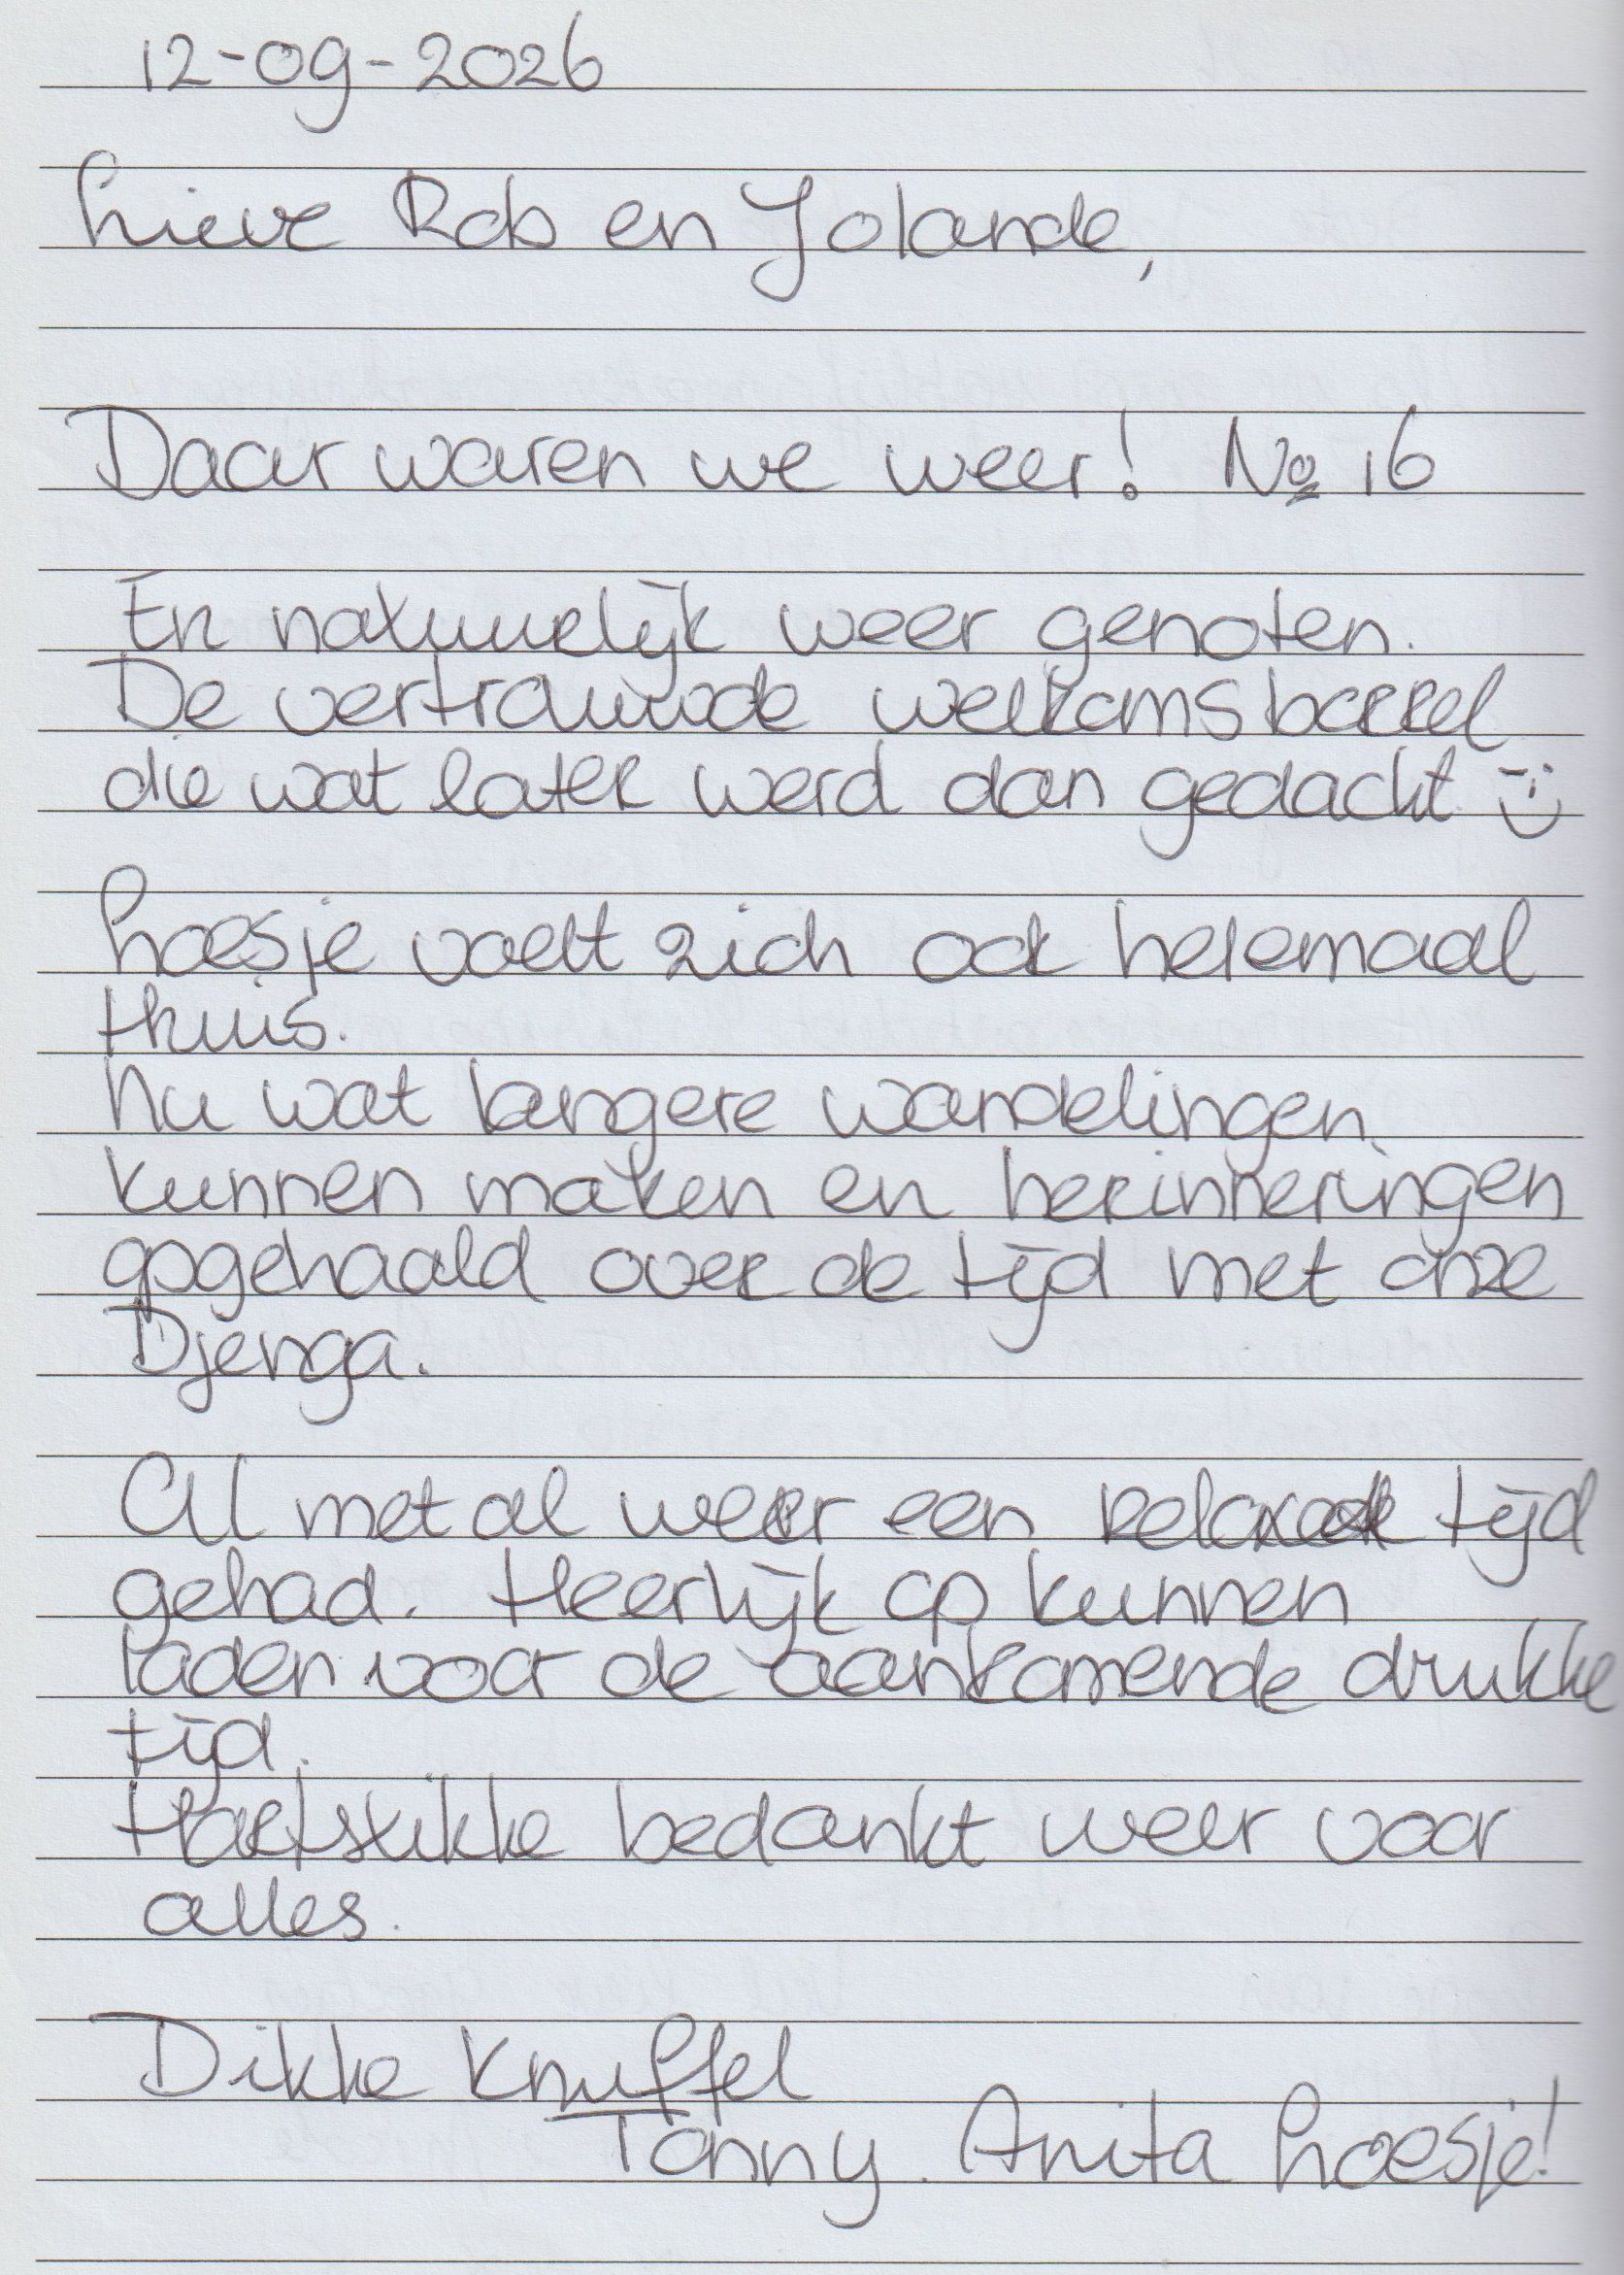 12-09-2026
Lieve Rob en Yolande,
Daar waren we weer! No 16
En natuurlijk weer genoten.
De vertrouwde welkomsborrel
die wat later werd dan gedacht :-)
Loesje voelt zich ook helemaal
thuis.
Nu wat langere wandelingen
kunnen maken en herinneringen
opgehaald over de tijd met onze
Djenga.
Al met al weer een relaxede tijd
gehad. Heerlijk op kunnen
laden voor de aankomende drukke
tijd.
Hartstikke bedankt weer voor
alles.
Dikke Knuffel
Tonny. Anita Loesje!